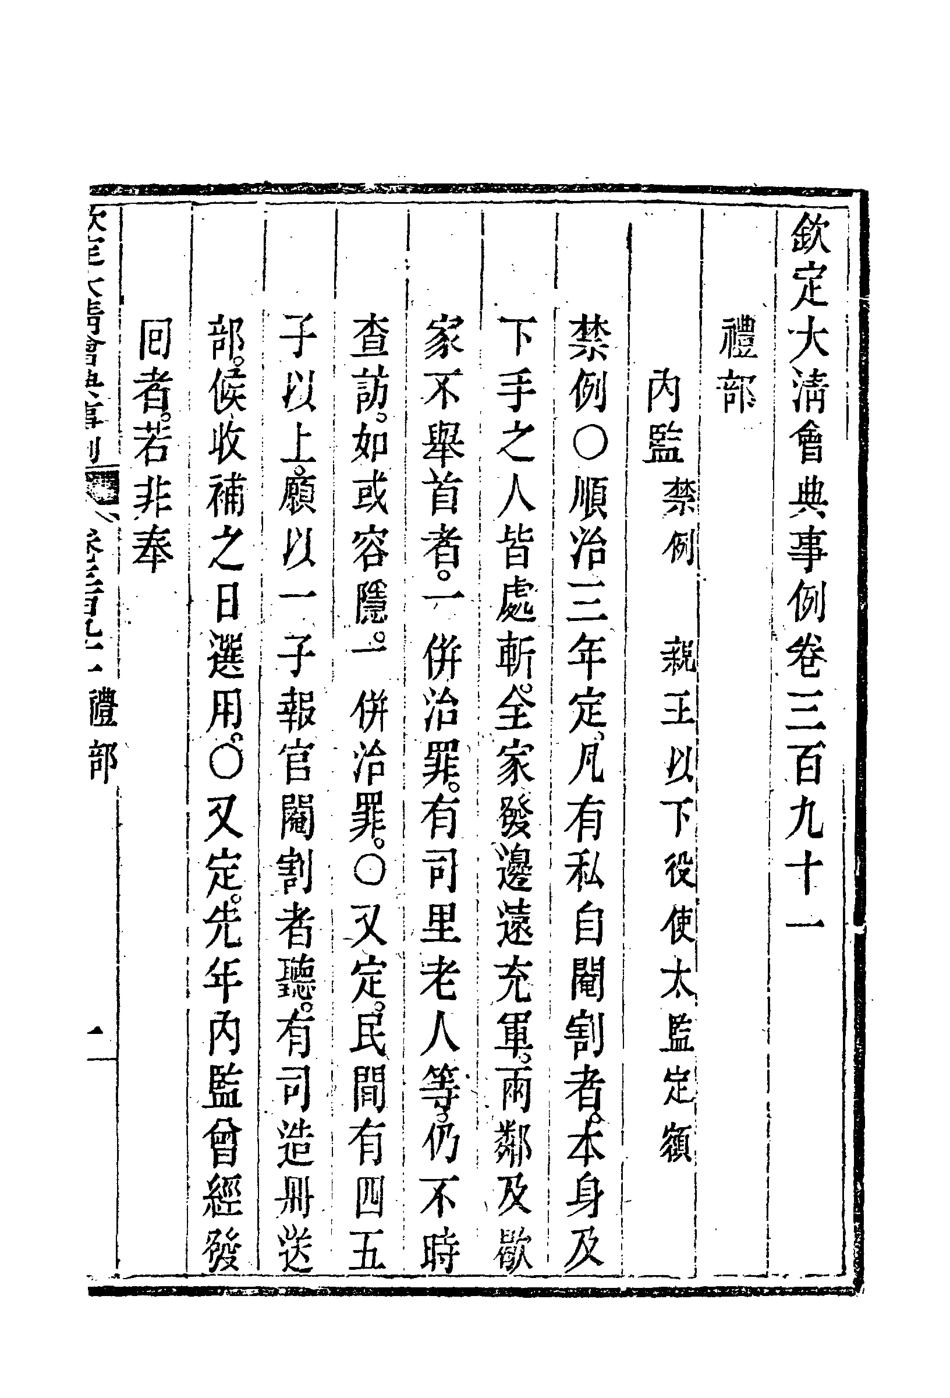 欽定大清會典事例卷三百九十一
禮部
內監 禁例 親王以下役使太監定額
禁例〇順治三年定。凡有私自閹割者。本身及
下手之人皆處斬。全家發邊遠充軍。兩鄰及歇
家不舉首者。一併治罪。有司里老人等。仍不時
查訪。如或容隱。一併治罪。〇又定。民間有四五
子以上。願以一子報官閹割者聽。有司造册送
部。候收補之日選用。〇又定。先年內監曾經發
回者。若非奉
欽定大清會典事例 卷三百九十一 禮部 一